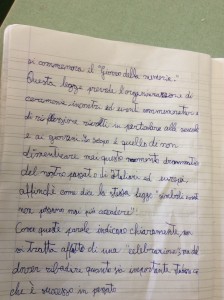 si commemora il "Giorno della memoria".
Questa legge prevede l'organizzazione di
cerimonie, incontri ed eventi commemorativi
di riflessione rivolti in particolare alle scuole
e ai giovani: lo scopo è quello di non
dimenticare mai questo momento drammatico
del nostro passato di Italiani ed europei
affinché come dice la stessa legge "simili eventi
non possano mai più accadere".
Come queste parole indicano chiaramente, non
si tratta affatto di una "celebrazione", ma del
dovere ribadire quanto sia importante
che è successo in passato